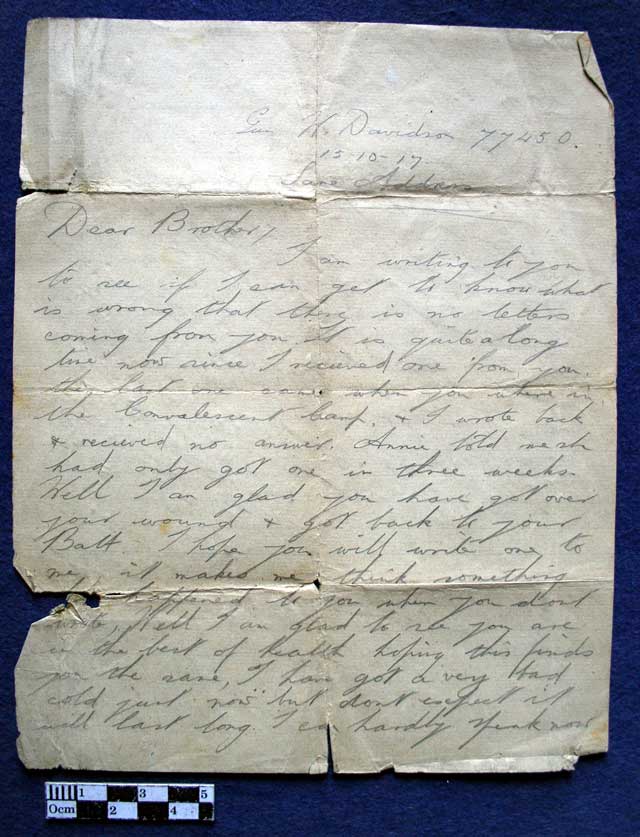 Gun W. Davidson 77450.
15-10-17
Same Address
Dear Brother,
I am writing to you
to see if I can get to know what
is wrong that there is no letters
coming from you. It is quite along
time now since I recieved one from you.
the last one came when you where in
the Convalescent Camp, & I wrote back
& recieved no answer. Annie told me sh
had only got one in three weeks.
Well I am glad you have got over
your wound & got back to your
Batt. I hope you will write one to
me, it makes me think something
happened to you when you dont
write, Well I am glad to see you are
in the best of health hoping this finds
you the same, I have got a very bad
cold just now but dont expect it
will last long. I can hardly speak now
1 3 5
0cm 2 4